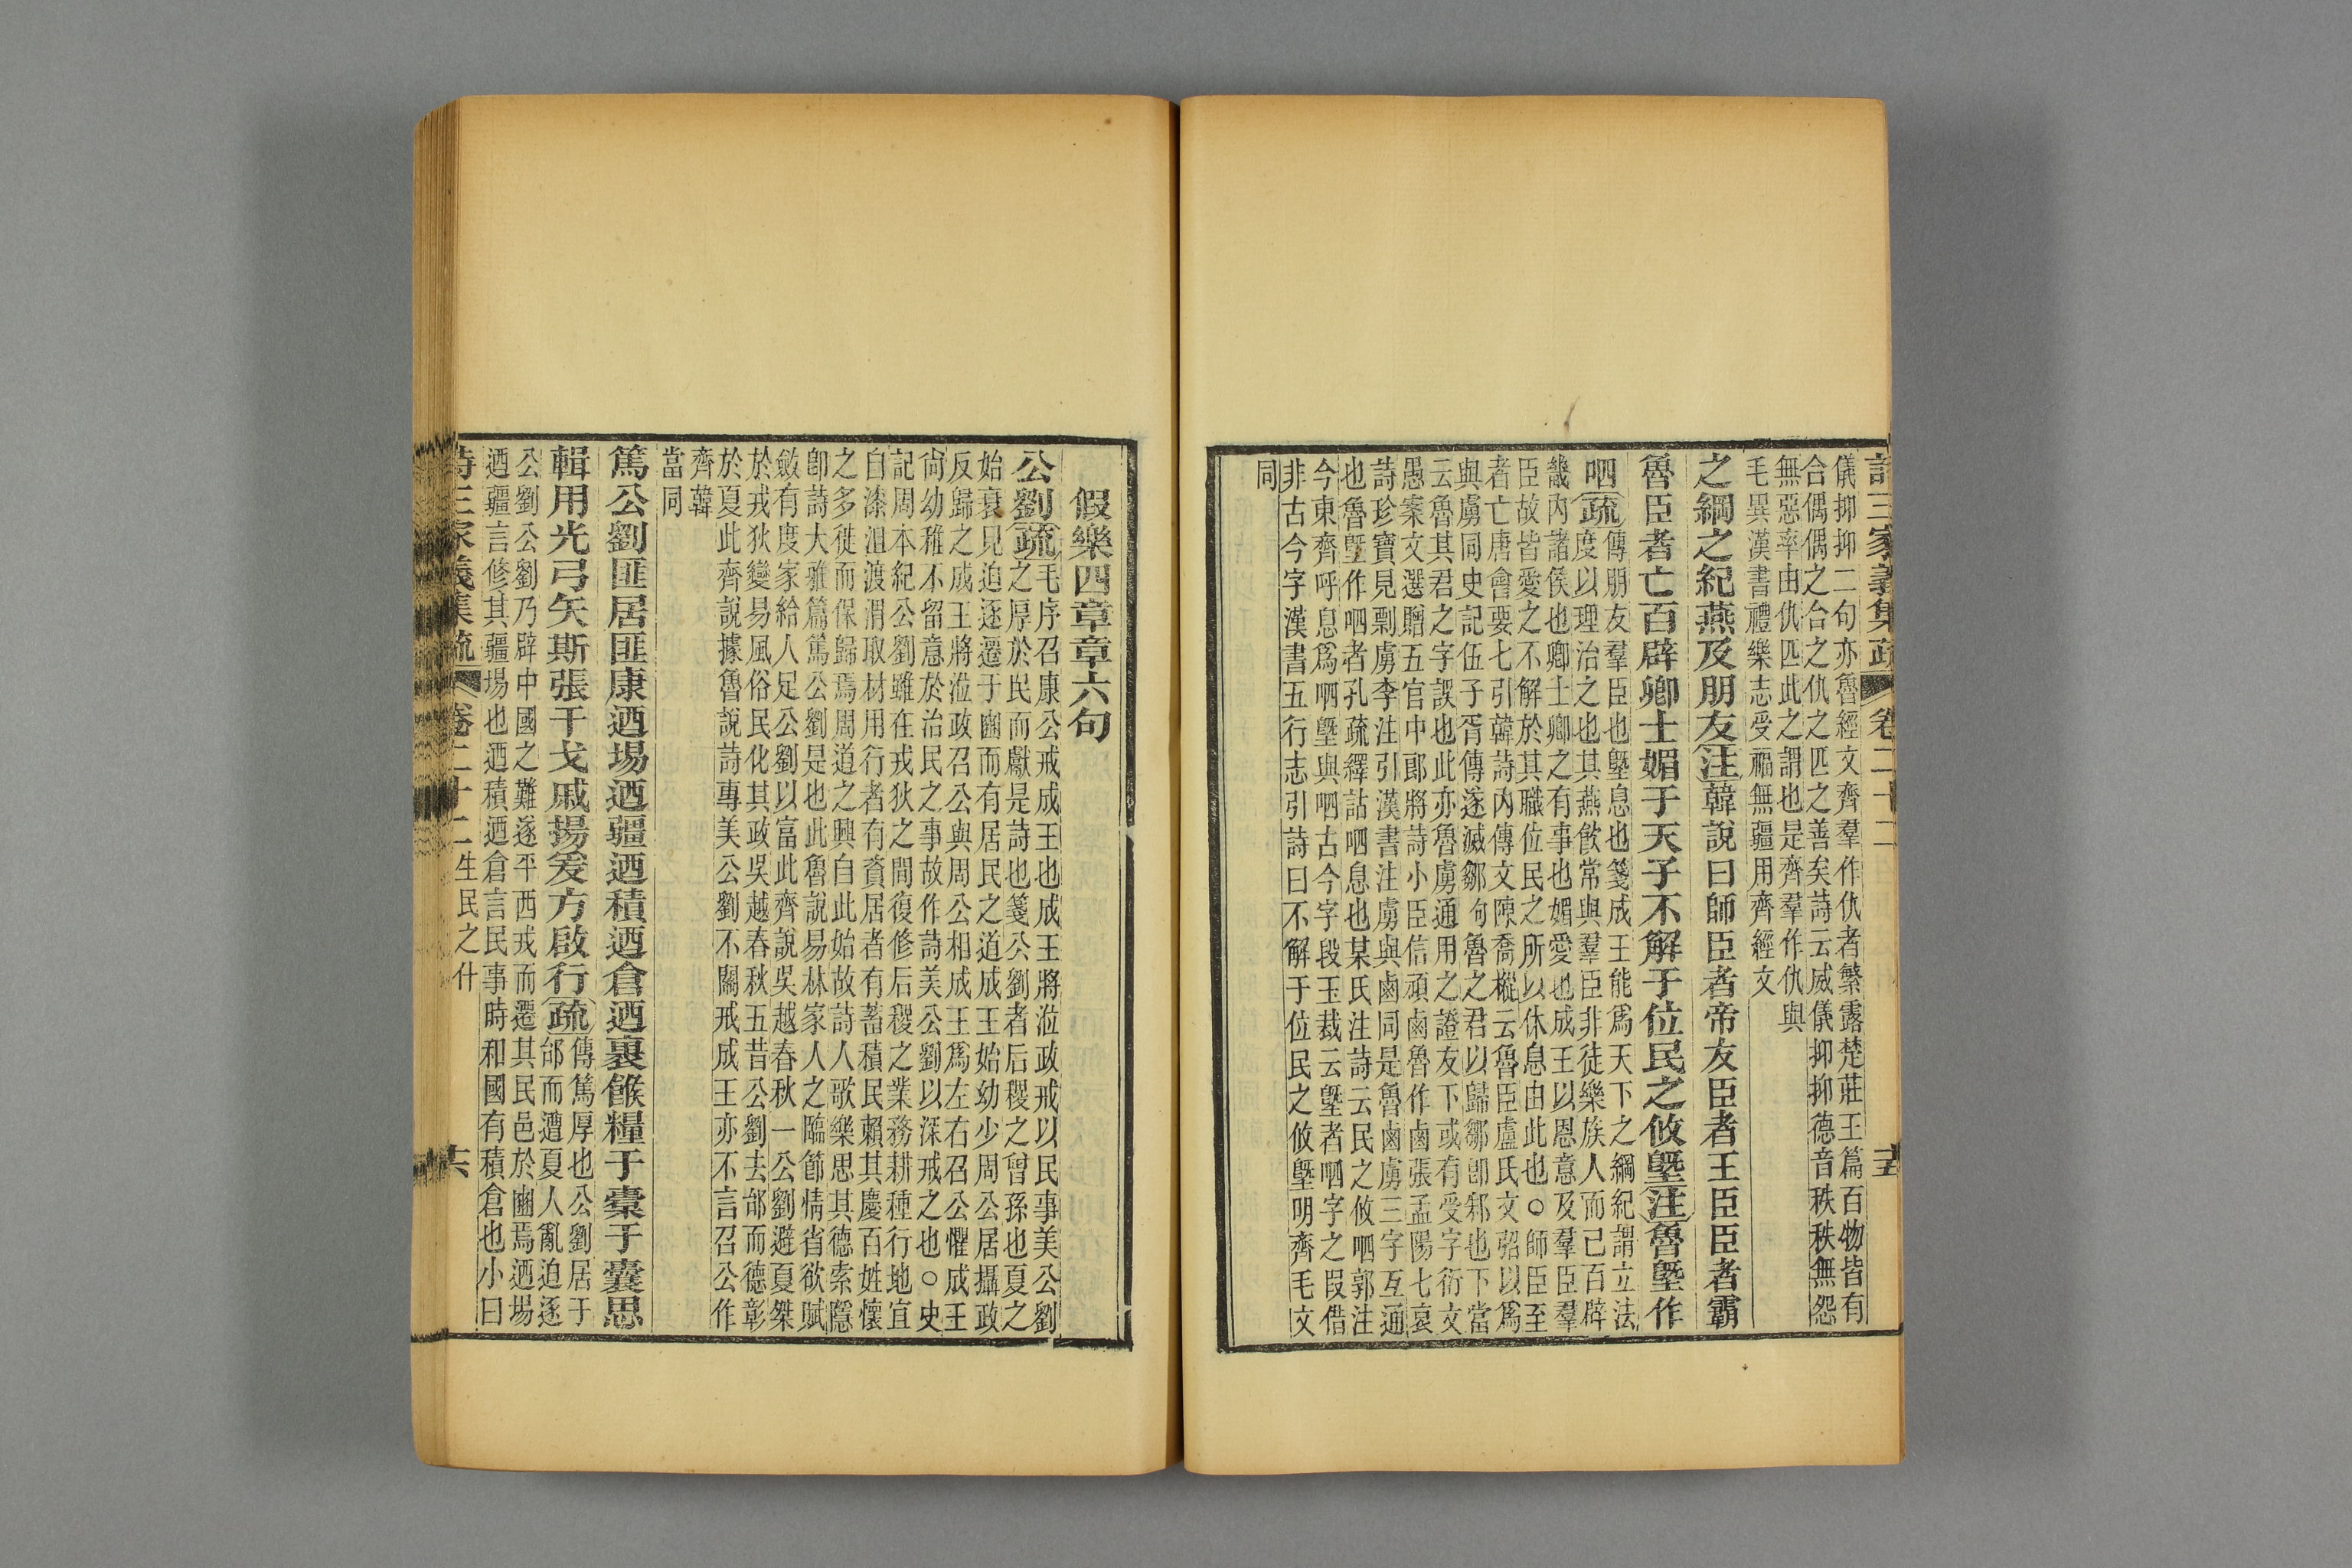 詩三家義集疏 卷二十二 十五
儀抑抑二句亦魯經文齊羣作仇者繁露楚莊王篇百物皆有
合偶偶之合之仇之匹之善矣詩云威儀抑抑德音秩秩無怨
無惡率由仇匹此之謂也是齊羣作仇與
毛異漢書禮樂志受福無疆用齊經文
之綱之紀燕及朋友注韓說曰師臣者帝友臣者王臣臣者霸
魯臣者亡百辟卿士媚于天子不解于位民之攸墍注魯墍作
呬疏傳朋友羣臣也墍息也箋成王能為天下之綱紀謂立法
度以理治之也其燕飲常與羣臣非徒樂族人而已百辟
畿內諸侯也卿士卿之有事也媚愛也成王以恩意及羣臣羣
臣故皆愛之不解於其職位民之所以休息由此也○師臣至
者亡唐會要七引韓詩內傳文陳喬樅云魯臣盧氏文弨以為
與虜同史記伍子胥傳遂滅鄒句魯之君以歸鄒卽邾也下當
云魯其君之字誤也此亦魯虜通用之證友下或有受字衍文
愚案文選贈五官中郎將詩小臣信頑鹵魯作鹵張孟陽七哀
詩珍寶見剽虜李注引漢書注虜與鹵同是魯鹵虜三字互通
也魯墍作呬者孔疏繹詁呬息也某氏注詩云民之攸呬郭注
今東齊呼息為呬墍與呬古今字段玉裁云墍者呬字之叚借
非古今字漢書五行志引詩曰不解于位民之攸墍明齊毛文
同
假樂四章章六句
公劉疏毛序召康公戒成王也成王將涖政戒以民事美公劉
之厚於民而獻是詩也箋公劉者后稷之曾孫也夏之
始衰見迫逐遷于豳而有居民之道成王始幼少周公居攝政
反歸之成王將涖政召公與周公相成王為左右召公懼成王
尙幼稚不留意於治民之事故作詩美公劉以深戒之也○史
記周本紀公劉雖在戎狄之間復修后稷之業務耕種行地宜
自漆沮渡渭取材用行者有資居者有蓄積民賴其慶百姓懷
之多徙而保歸焉周道之興自此始故詩人歌樂思其德索隱
卽詩大雅篇篤公劉是也此魯說易林家人之臨節情省欲賦
斂有度家給人足公劉以富此齊說吳越春秋一公劉避夏桀
於戎狄變易風俗民化其政吳越春秋五昔公劉去邰而德彰
於夏此齊說據魯說詩專美公劉不關戒成王亦不言召公作
齊韓
當同
篤公劉匪居匪康迺場迺疆迺積迺倉迺裹餱糧于橐于囊思
輯用光弓矢斯張干戈戚揚爰方啟行疏傳篤厚也公劉居于
邰而遭夏人亂迫逐
公劉公劉乃辟中國之難遂平西戎而遷其民邑於豳焉迺場
迺疆言修其疆場也迺積迺倉言民事時和國有積倉也小曰
詩三家義集疏 卷二十二 生民之什 十六